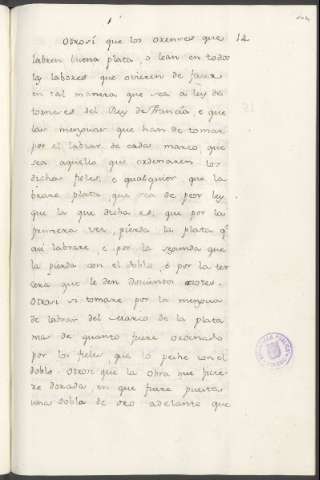 Otrosí que los orenzes que 12
labren buena plata, o lean en todas
las labores que ovieren de fazer
en tal manera que sea a ley de
torneses del Rey de Francia, e que
las menguas que han de tomar
por el labrar de cada marco que
sea aquello que ordenaren los
dichos fieles, e qualquier que la
brare plata, que sea de peor ley,
que la que dicha es, que por la
primera vez, pierda la plata qe
qui labrare e por la segunda que
la pierda con el doblo, e por la ter
cera que le den doscientos azotes.
Otrosi si tomare por la mengua
de labrar del marco de la plata
mas de quanto fuere ordenado
por los fieles que lo peche con el
doblo. Otrosi que la obra que fue
re dorada en que fuere puesta
una dobla de oro adelante que